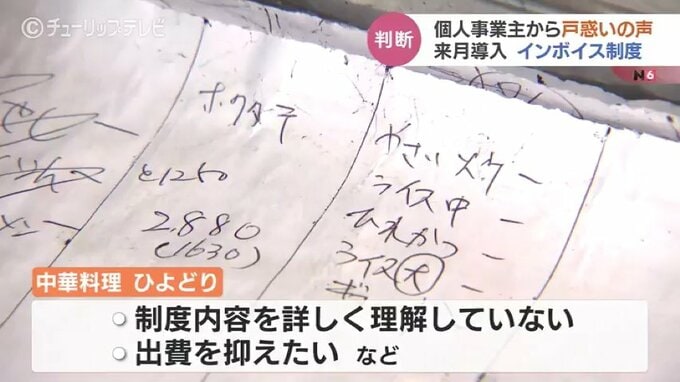 ©チューリップテレビ
判断
個人事業主から戸惑いの声
来月導入 インボイス制度
N6
2,880
(1630)
ライス中 ー
ひれかつ ー
ライス大 ー
中華料理 ひよどり
制度内容を詳しく理解していない
出費を抑えたい など